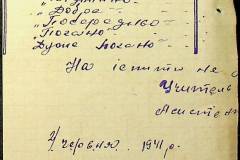 „Добре"
„Посередньо"
„Погано"
„Дуже погано"
На іспити не
Учитель
Асистент
21 червня 1941 р.